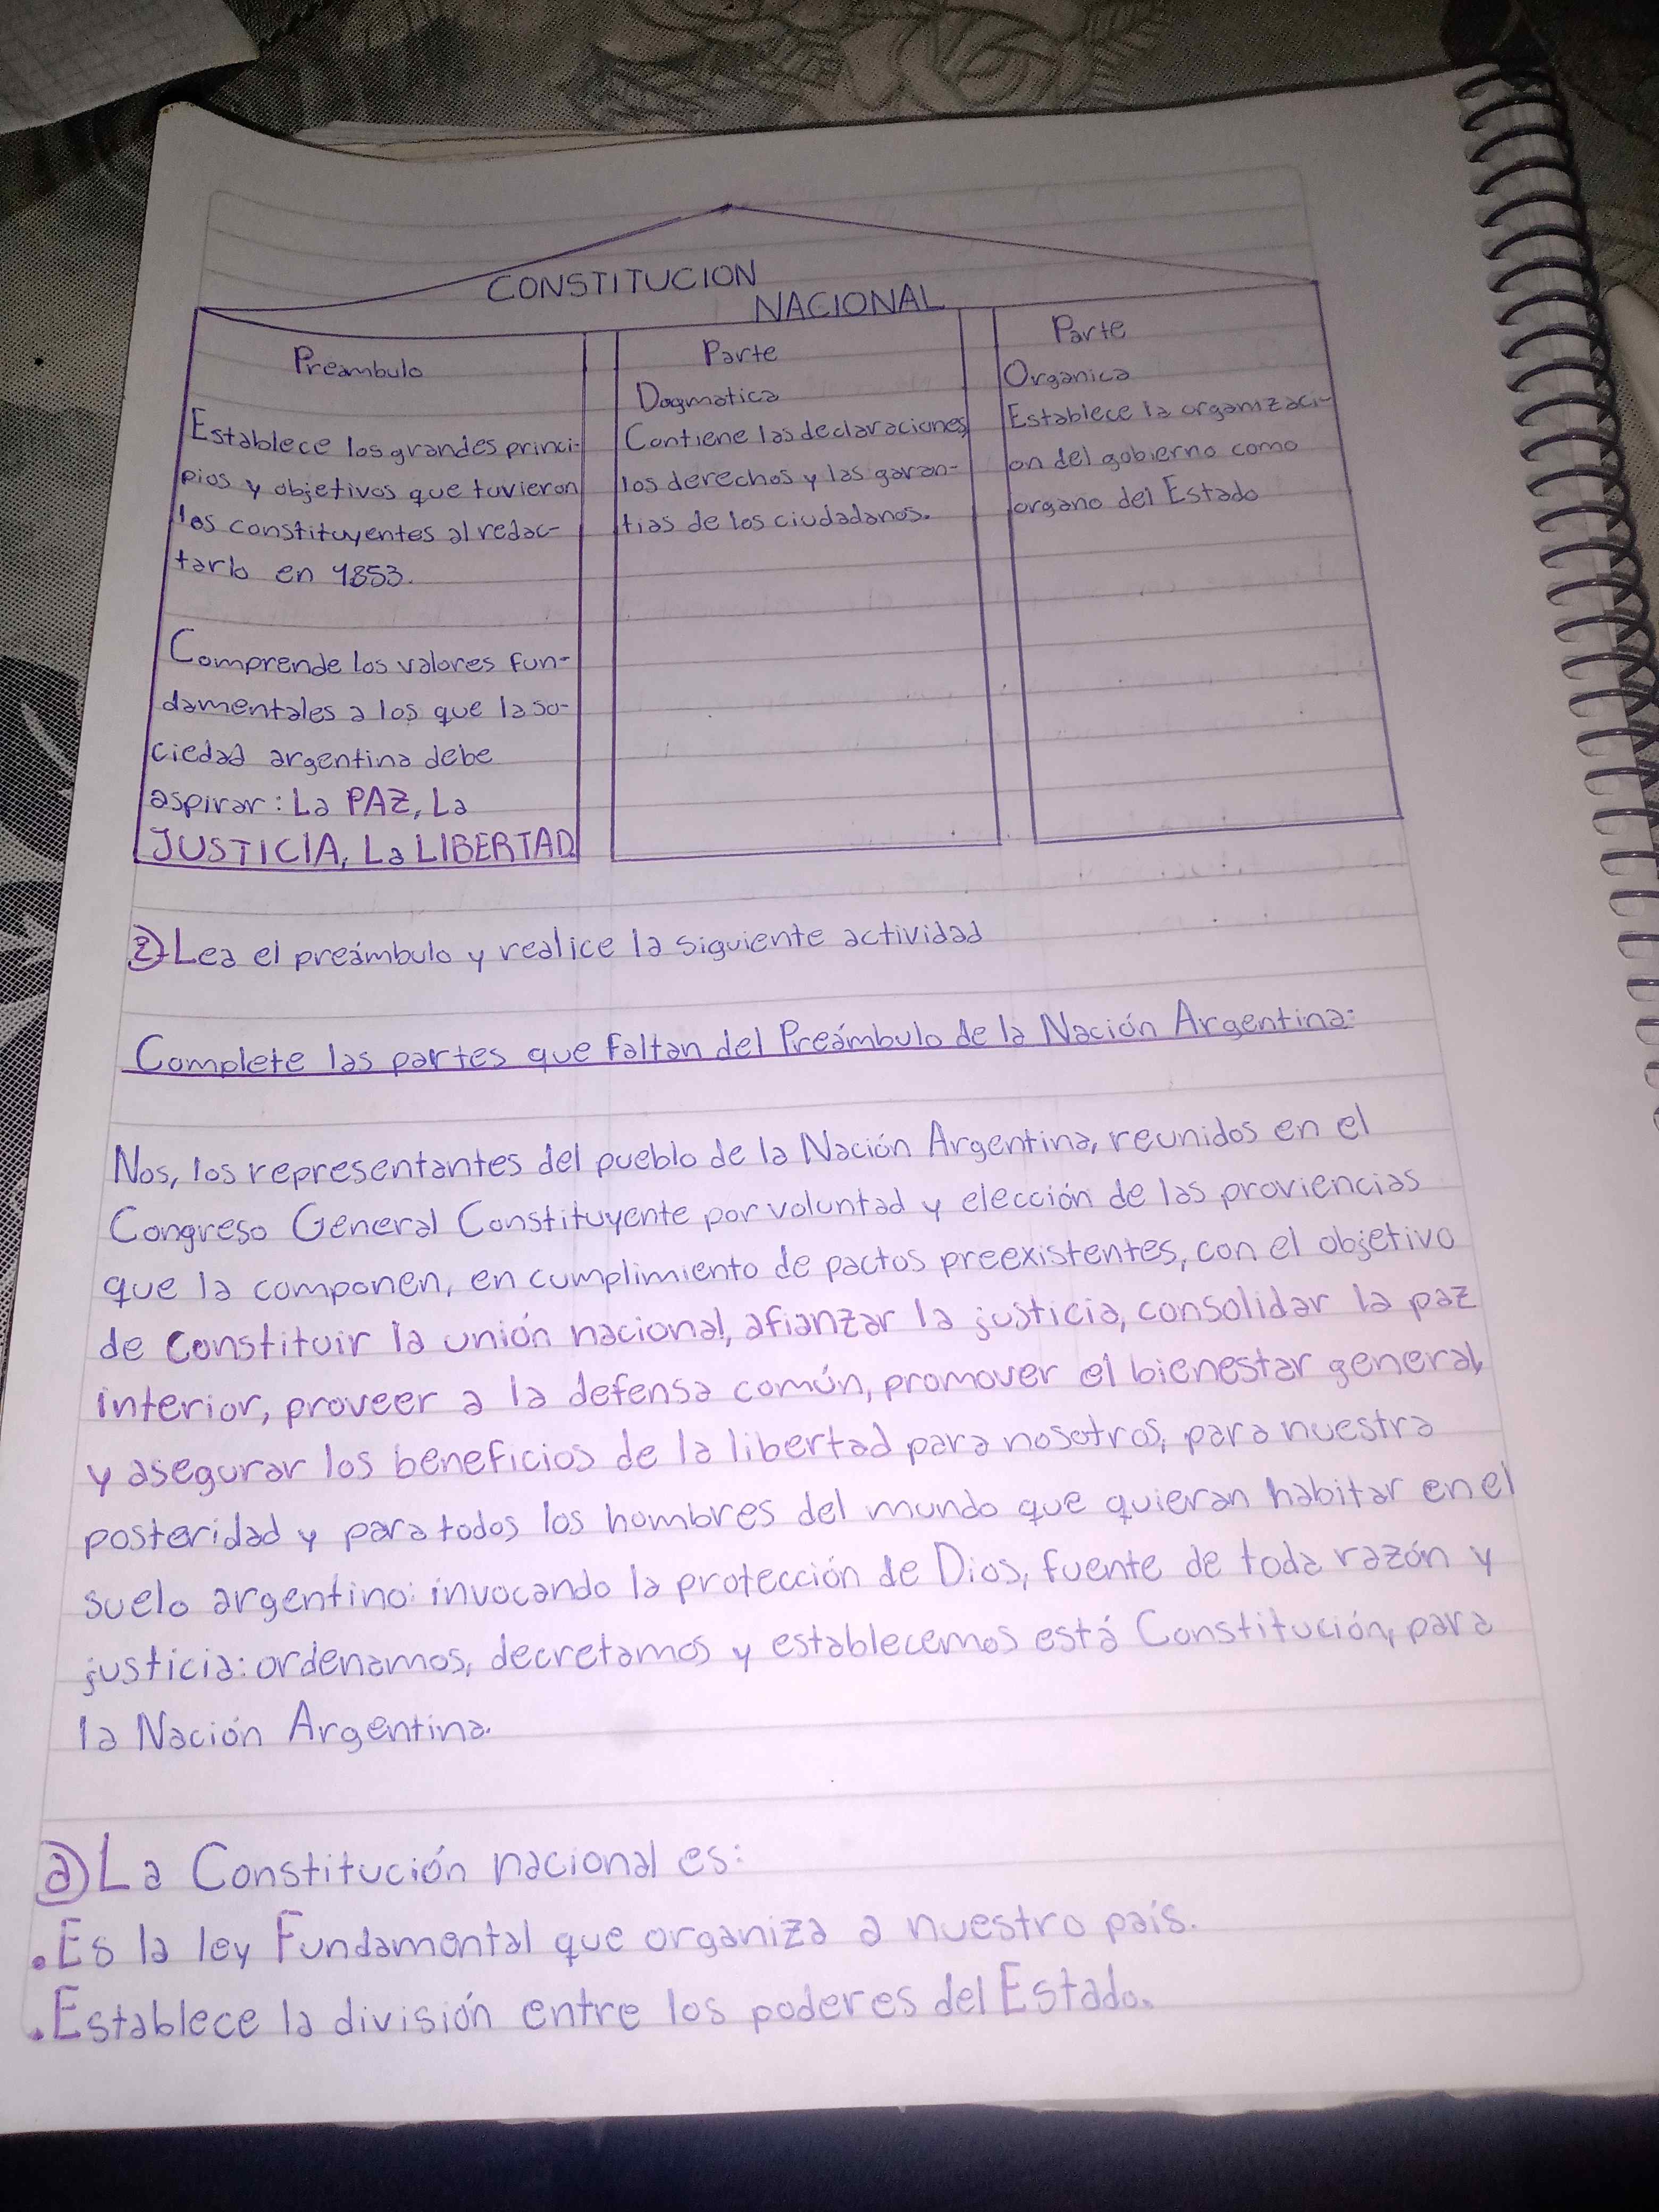 CONSTITUCION
NACIONAL
Preambulo
Establece los grandes princi-
pios y objetivos que tuvieron
los constituyentes al redac-
tarlo en 1853.
Comprende los valores fun-
damentales a los que la so-
ciedad argentina debe
aspirar: La PAZ, La
JUSTICIA, La LIBERTAD.
Parte
Dogmatica
Contiene las declaraciones,
los derechos y las garan-
tias de los ciudadanos.
Parte
Organica
Establece la organizaci-
on del gobierno como
organo del Estado
2) Lea el preámbulo y realice la siguiente actividad
Complete las partes que faltan del Preámbulo de la Nación Argentina:
Nos, los representantes del pueblo de la Nación Argentina, reunidos en el
Congreso General Constituyente por voluntad y elección de las proviencias
que la componen, en cumplimiento de pactos preexistentes, con el objetivo
de constituir la unión nacional, afianzar la justicia, consolidar la paz
interior, proveer a la defensa común, promover el bienestar general,
y asegurar los beneficios de la libertad para nosotros, para nuestra
posteridad y para todos los hombres del mundo que quieran habitar en el
suelo argentino: invocando la protección de Dios, fuente de toda razón y
justicia: ordenamos, decretamos y establecemos está Constitución, para
la Nación Argentina.
a) La Constitución nacional es:
• Es la ley Fundamental que organiza a nuestro país.
• Establece la división entre los poderes del Estado.